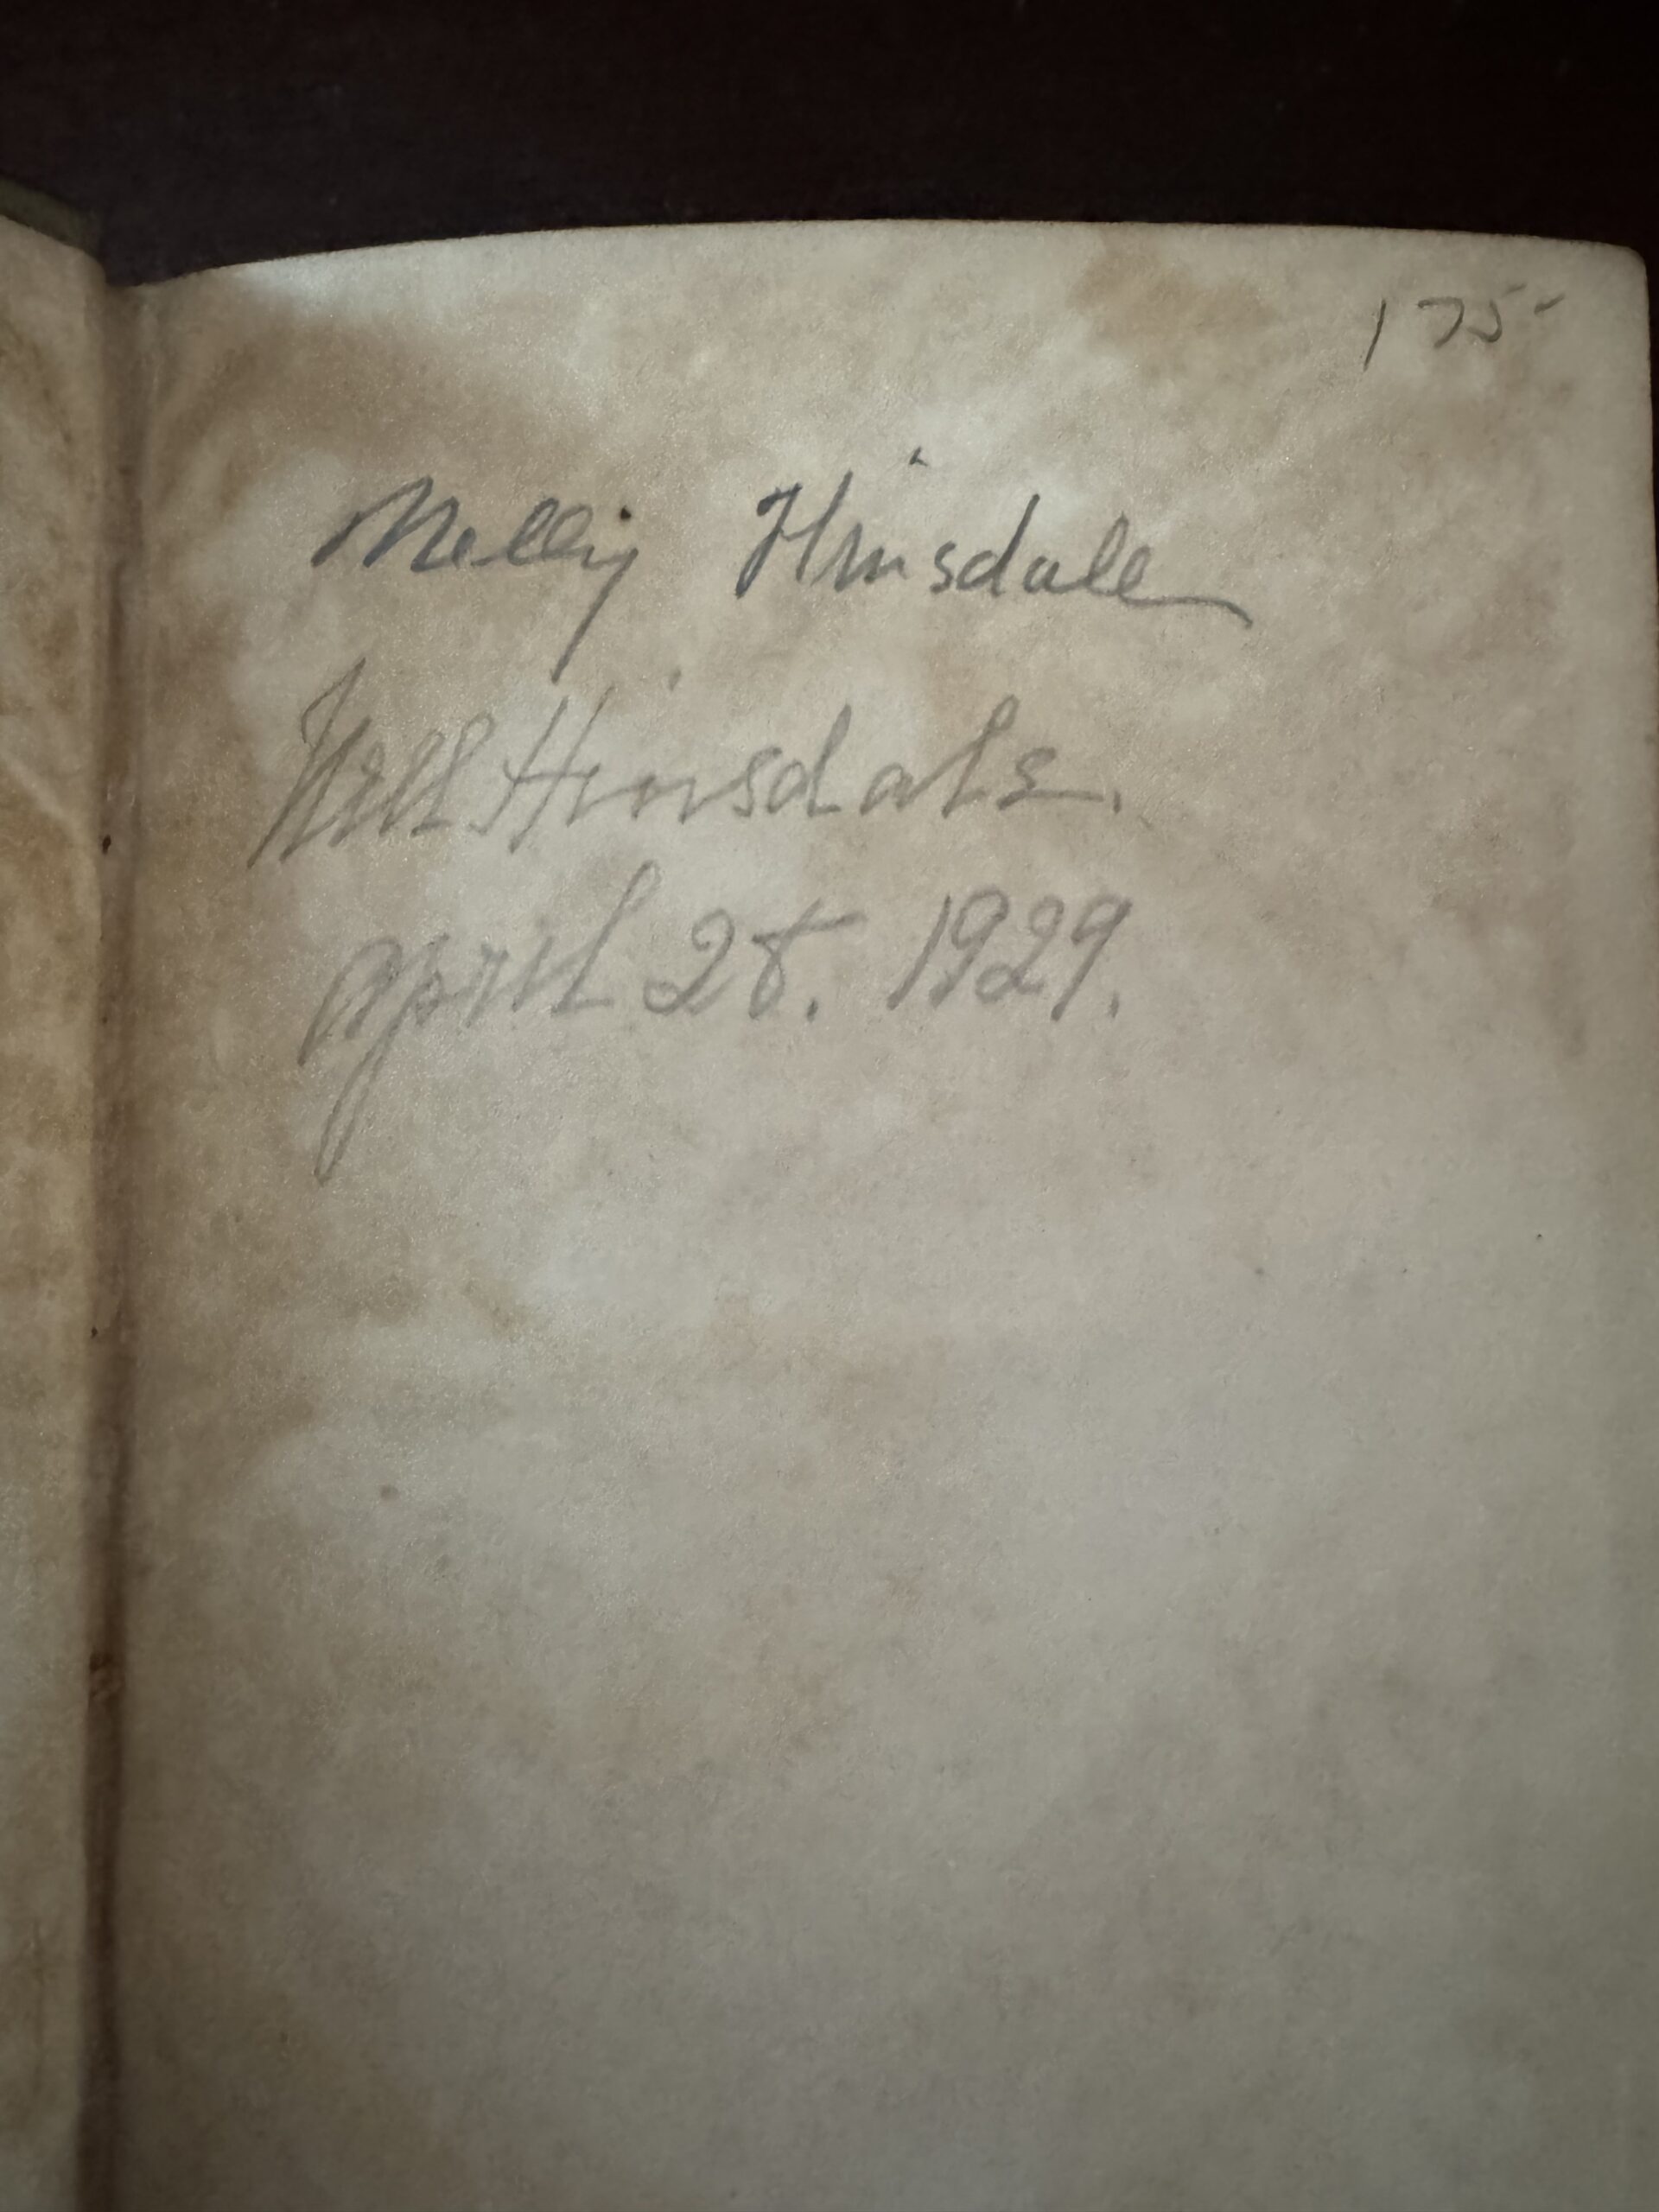 175
Nelly Hinsdale
Nell Hinsdale.
April 28. 1929.